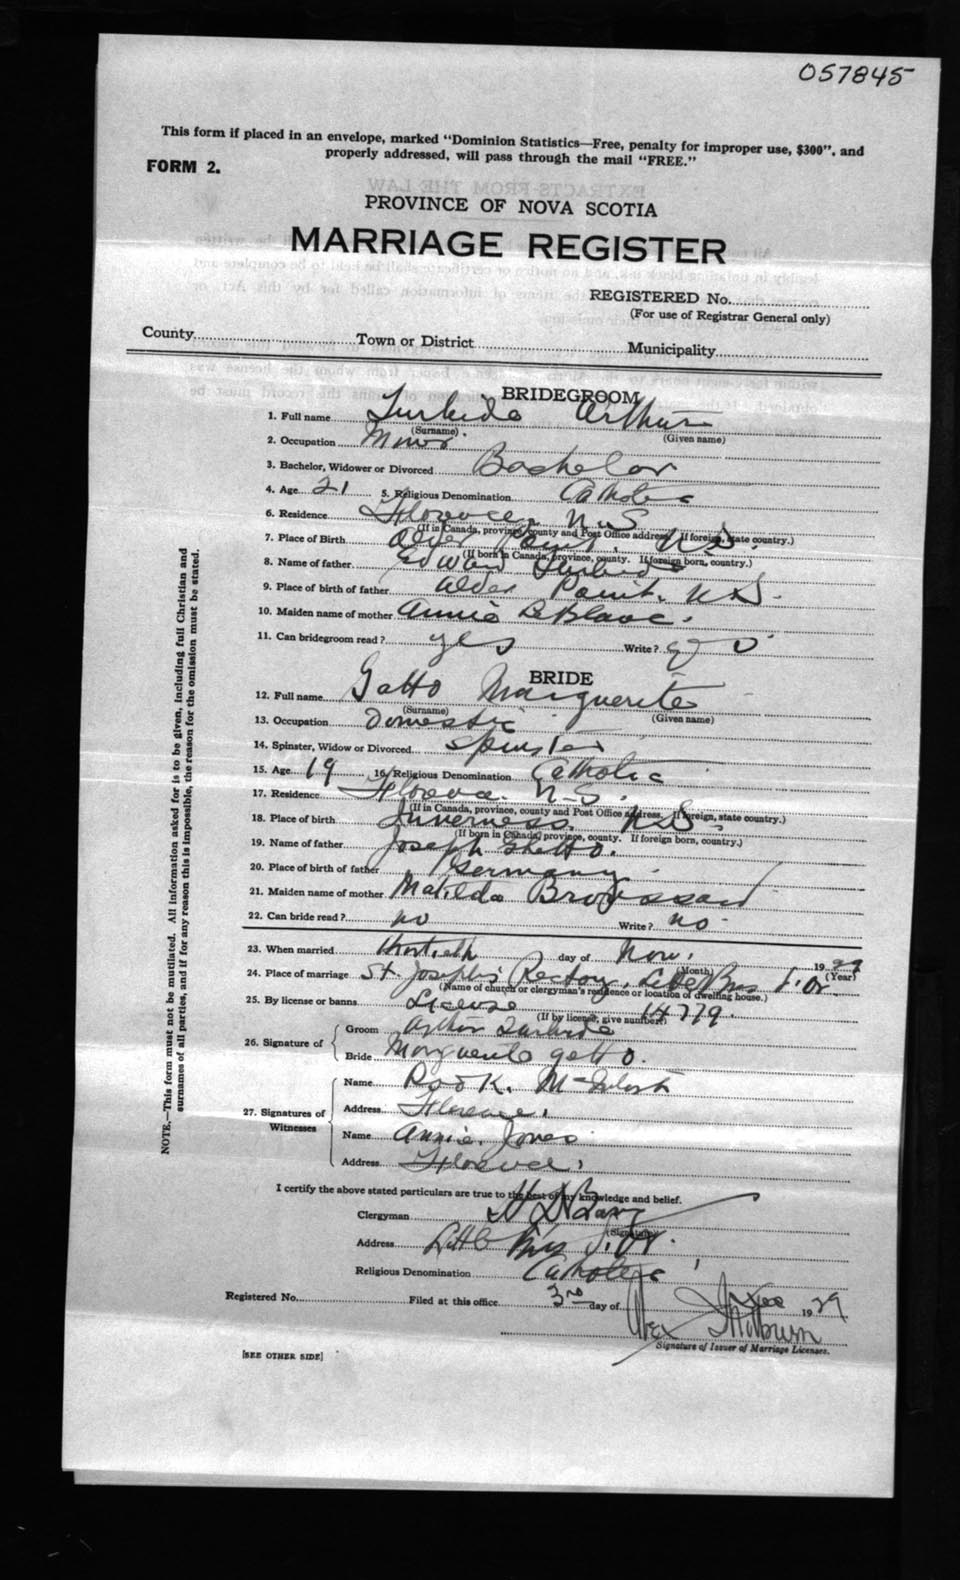 057845
This form if placed in an envelope, marked "Dominion Statistics—Free, penalty for improper use, $300", and
properly addressed, will pass through the mail "FREE."
FORM 2.
PROVINCE OF NOVA SCOTIA
MARRIAGE REGISTER
REGISTERED No.
(For use of Registrar General only)
County Town or District Municipality
BRIDEGROOM
1. Full name Turbide Arthur
(Surname) (Given name)
2. Occupation Miner
3. Bachelor, Widower or Divorced Bachelor
4. Age 21 5. Religious Denomination Catholic
6. Residence Florence N.S
(If in Canada, province, county and Post Office address. If foreign, state country.)
7. Place of Birth Alder Point, N.S.
(If born in Canada, province, county. If foreign born, country.)
8. Name of father Edward Turbide
9. Place of birth of father Alder Point. N.S.
10. Maiden name of mother Annie LeBlanc.
11. Can bridegroom read? yes Write?
BRIDE
12. Full name Gatto Marguerite
(Surname) (Given name)
13. Occupation Domestic
14. Spinster, Widow or Divorced Spinster
15. Age 19 16. Religious Denomination Catholic
17. Residence Florence. N.S.
(If in Canada, province, county and Post Office address. If foreign, state country.)
18. Place of birth Inverness. N.S.
(If born in Canada, province, county. If foreign born, country.)
19. Name of father Joseph Ghetto.
20. Place of birth of father Germany
21. Maiden name of mother Matilda
22. Can bride read? no Write? no
23. When married day of Nov. 1929
(Month) (Year)
24. Place of marriage St. Joseph's Rectory, Little Bras d'Or.
(Name of church or clergyman's residence or location of dwelling house.)
25. By license or banns License 14779.
(If by license, give number)
26. Signature of Groom Arthur Turbide
Bride Marguerite Getto.
27. Signatures of Witnesses
Name McIntosh
Address Florence.
Name Annie Jones
Address Florence.
I certify the above stated particulars are true to the best of my knowledge and belief.
Clergyman
(Signature)
Address Little Bras d'Or.
Religious Denomination Catholic
Registered No. Filed at this office 3rd day of Dec 1929
Signature of Issuer of Marriage Licenses.
[SEE OTHER SIDE]
NOTE.—This form must not be mutilated. All information asked for is to be given, including full Christian and
surnames of all parties, and if for any reason this is impossible, the reason for the omission must be stated.